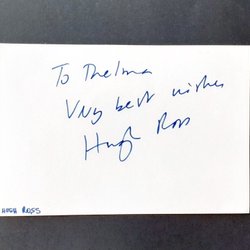 To Thelma
Very best wishes
Hugh Ross
HUGH ROSS